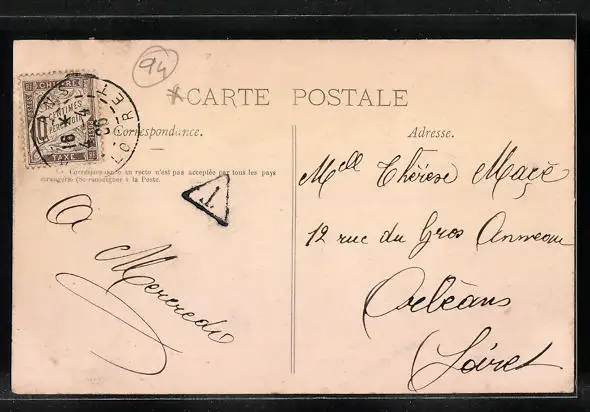 94
CARTE POSTALE
Correspondance.
Adresse.
La Correspondance au recto n'est pas acceptée par tous les pays
étrangers. (Se renseigner à la Poste.
CHIFFRE
CENTIMES
À PERCEVOIR
TAXE
LOIRET
T
A Mercredi
Mlle Thérèse Macé
12 rue du Gros Anneau
Orléans
Loiret